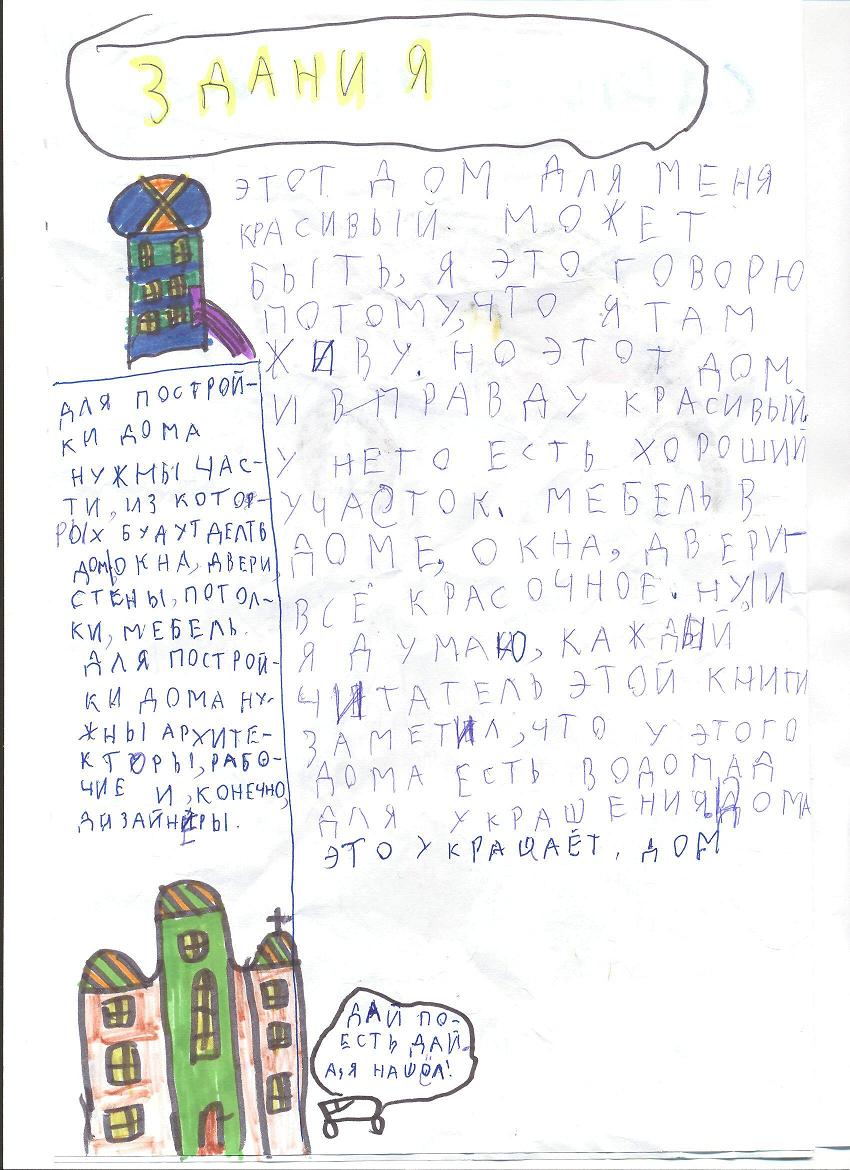 ЗДАНИЯ
ЭТОТ ДОМ ДЛЯ МЕНЯ
КРАСИВЫЙ. МОЖЕТ
БЫТЬ, Я ЭТО ГОВОРЮ
ПОТОМУ, ЧТО Я ТАМ
ЖИВУ. НО ЭТОТ ДОМ
И ВПРАВДУ КРАСИВЫЙ.
У НЕГО ЕСТЬ ХОРОШИЙ
УЧАСТОК. МЕБЕЛЬ В
ДОМЕ, ОКНА, ДВЕРИ-
ВСЁ КРАСОЧНОЕ. НУ, И
Я ДУМАЮ, КАЖДЫЙ
ЧИТАТЕЛЬ ЭТОЙ КНИГИ
ЗАМЕТИЛ, ЧТО У ЭТОГО
ДОМА ЕСТЬ ВОДОПАД
ДЛЯ УКРАШЕНИЯ ДОМА
ЭТО УКРАШАЕТ, ДОМ
ДЛЯ ПОСТРОЙ-
КИ ДОМА
НУЖНЫ ЧАС-
ТИ, ИЗ КОТО-
РЫХ БУДУТ ДЕЛТЬ
ДОМ, ОКНА, ДВЕРИ,
СТЕНЫ, ПОТОЛ-
КИ, МЕБЕЛЬ.
ДЛЯ ПОСТРОЙ-
КИ ДОМА НУ-
ЖНЫ АРХИТЕ-
КТОРЫ, РАБО-
ЧИЕ И, КОНЕЧНО,
ДИЗАЙНЕРЫ.
ДАЙ ПО-
ЕСТЬ ДАЙ-
А, Я НАШОЛ!